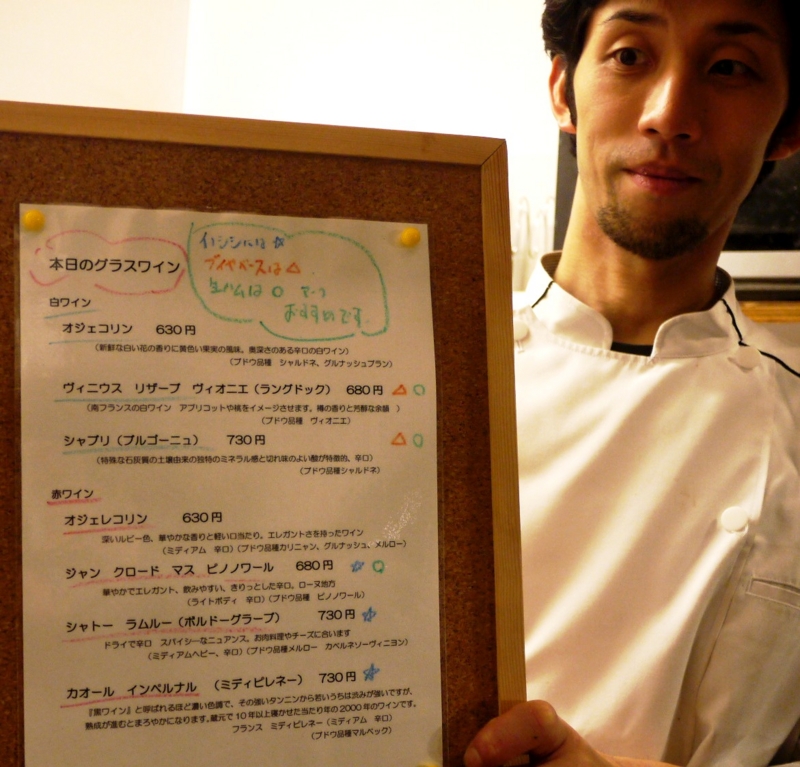 本日のグラスワイン
イノシシには☆
ブイヤベースは△
生ハムは○ で〜つ
おすすめです。
白ワイン
オジェコリン 630円
(新鮮な白い花の香りに黄色い果実の風味。奥深さのある辛口の白ワイン)
(ブドウ品種 シャルドネ、グルナッシュブラン)
ヴィニウス リザーブ ヴィオニエ(ラングドック) 680円 △ ○
(南フランスの白ワイン アプリコットや桃をイメージさせます。樽の香りと芳醇な余韻 )
(ブドウ品種 ヴィオニエ)
シャブリ(ブルゴーニュ) 730円 △ ○
(特殊な石灰質の土壌由来の独特のミネラル感と切れ味のよい酸が特徴的、辛口)
(ブドウ品種シャルドネ)
赤ワイン
オジェレコリン 630円
深いルビー色、華やかな香りと軽い口当たり。エレガントさを持ったワイン
(ミディアム 辛口)(ブドウ品種カリニャン、グルナッシュ、メルロー)
ジャン クロード マス ピノノワール 680円 ☆ ○
華やかでエレガント、飲みやすい、きりっとした辛口。ローヌ地方
(ライトボディ 辛口)(ブドウ品種 ピノノワール)
シャトー ラムルー(ボルドーグラーブ) 730円 ☆
ドライで辛口 スパイシーなニュアンス。お肉料理やチーズに合います
(ミディアムヘビー、辛口)(ブドウ品種メルロー カベルネソーヴィニヨン)
カオール インペルナル (ミディピレネー) 730円 ☆
『黒ワイン』と呼ばれるほど濃い色調で、その強いタンニンから若いうちは渋みが強いですが、
熟成が進むとまろやかになります。蔵元で10年以上寝かせた当たり年の2000年のワインです。
フランス ミディピレネー(ミディアム 辛口)
(ブドウ品種マルベック)